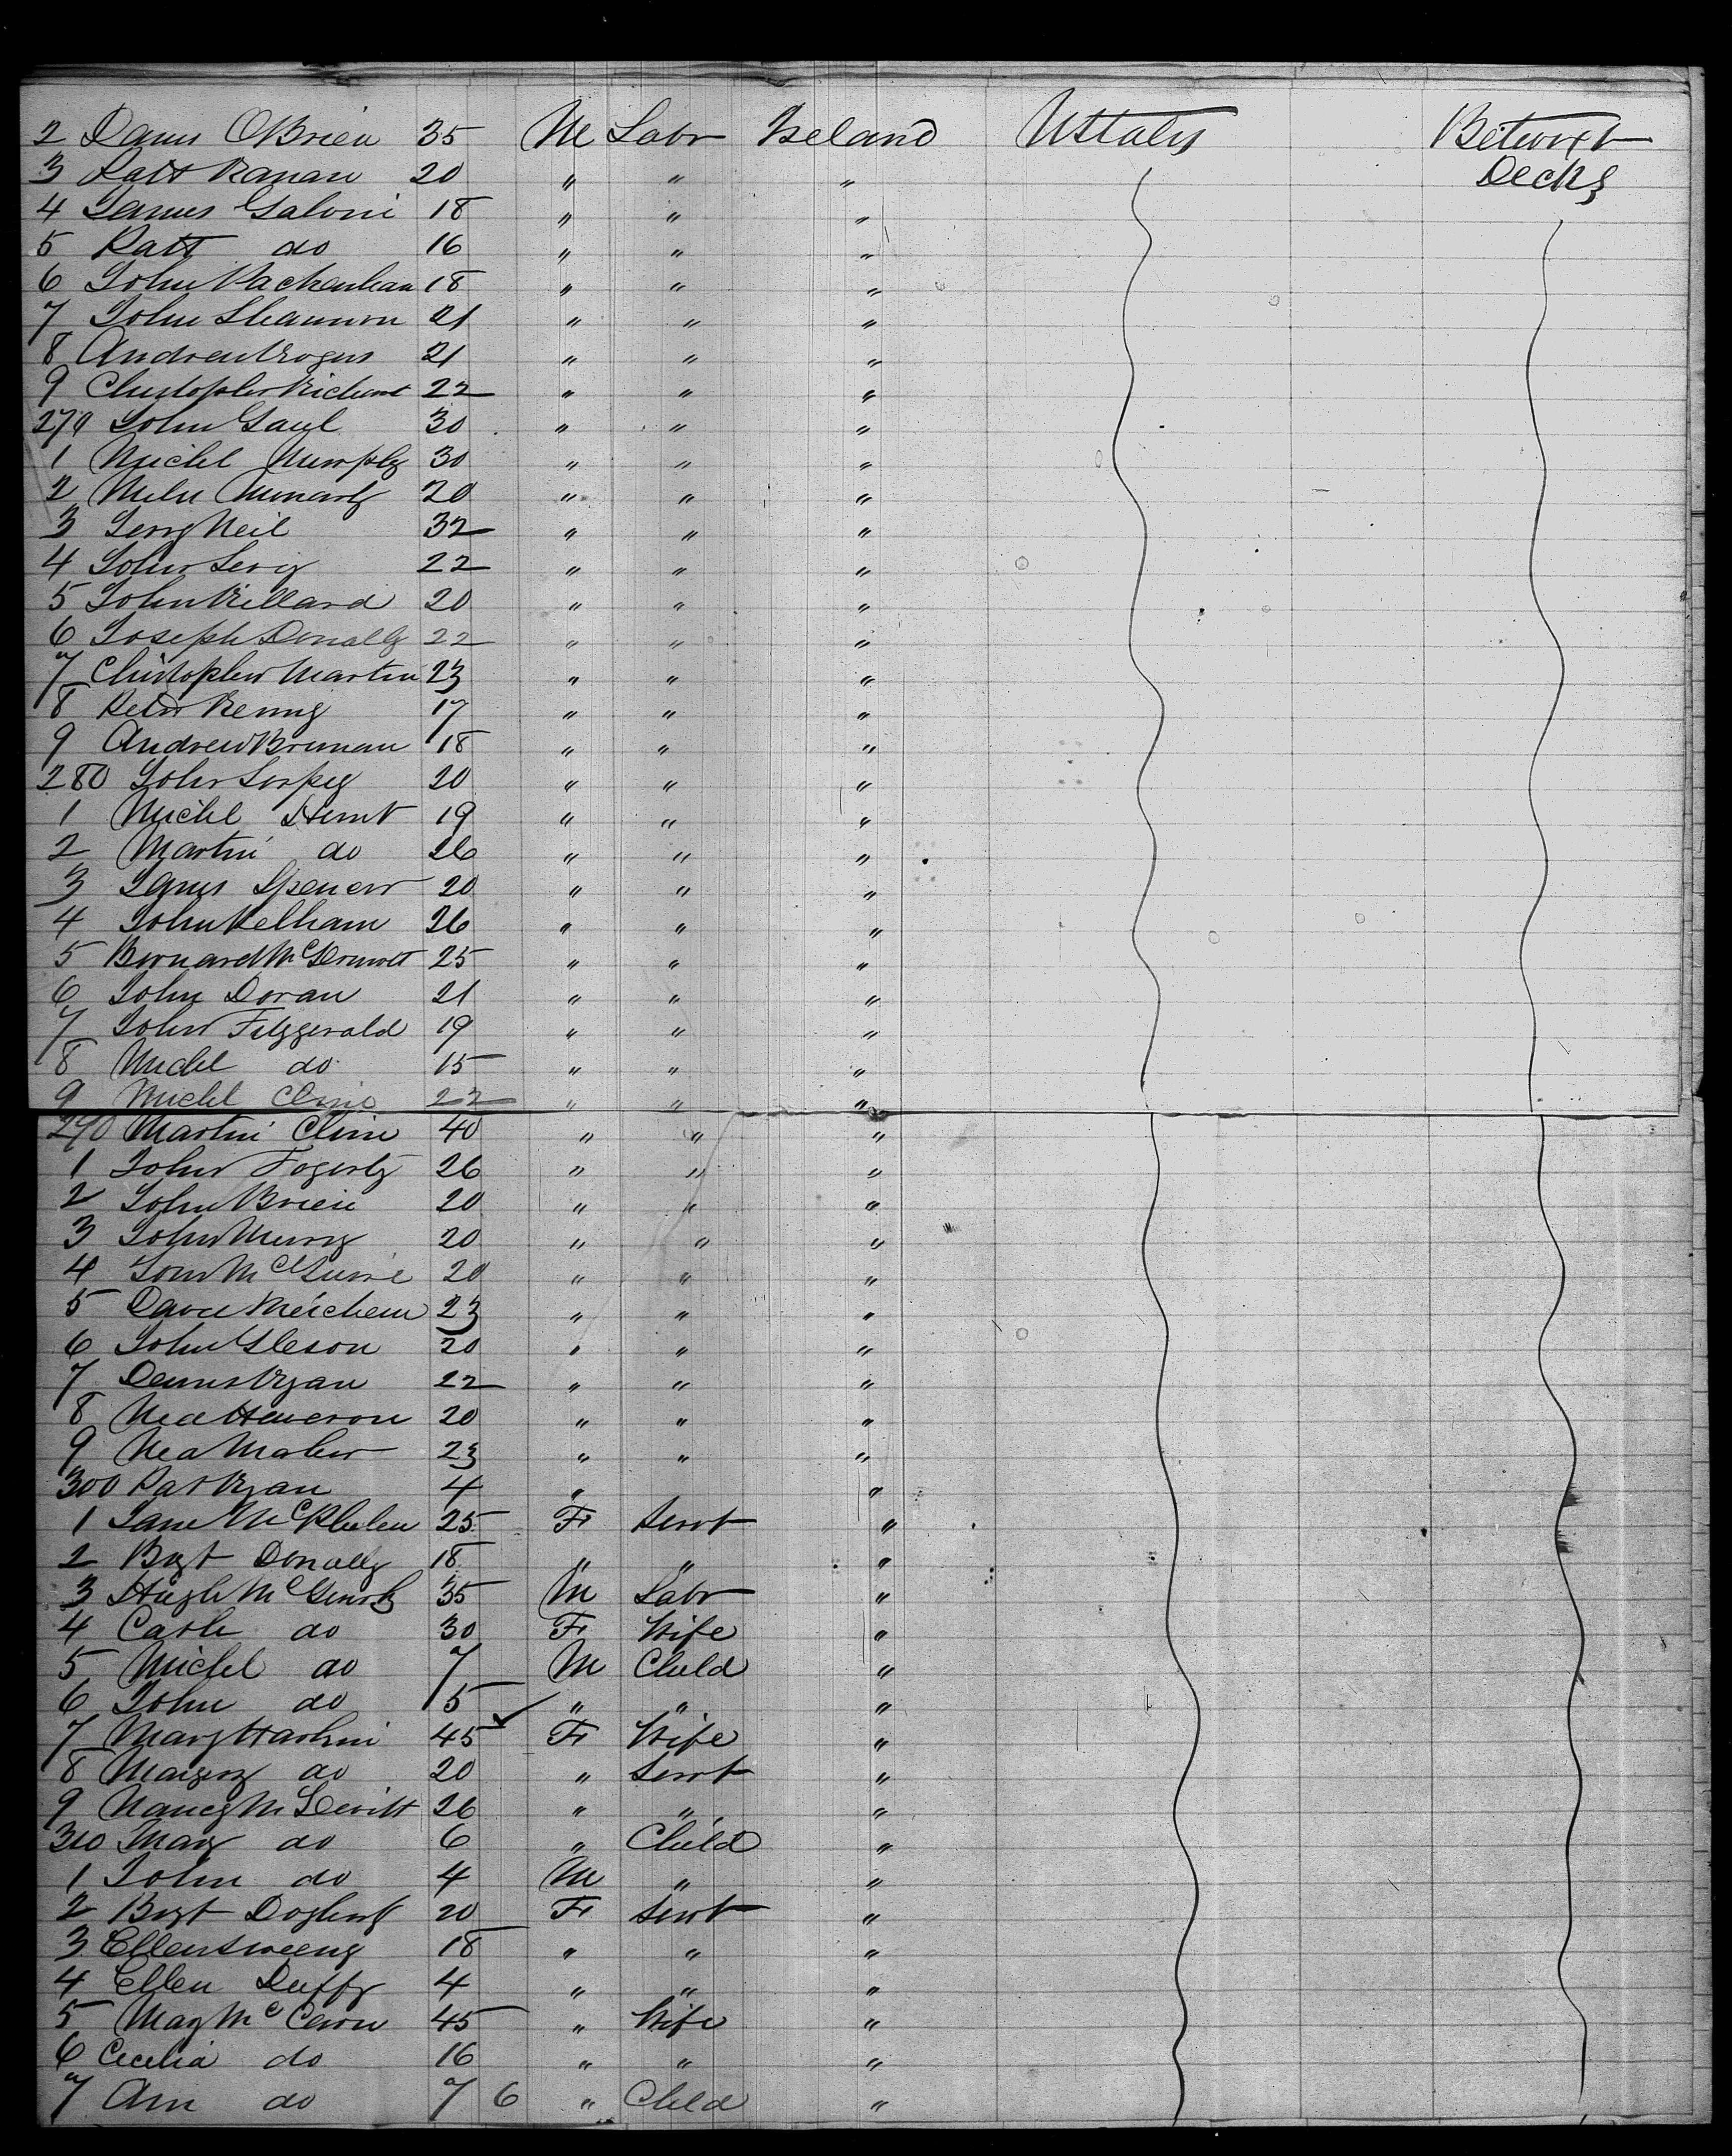 2 Danis OBrien 35 M Labr Ireland UStates Betwixt
Decks
3 Patt Kanan 20 " " "
4 James Galvin 18 " " "
5 Patt do 16 " " "
6 John 18 " " "
7 John Shannon 21 " " "
8 Andrew Rogers 21 " " "
9 Christopher 22 " " "
270 John Gaul 30 " " "
1 Michl Murphy 30 " " "
2 20 " " "
3 Jerry Neil 32 " " "
4 John 22 " " "
5 John Killard 20 " " "
6 Joseph Donally 22 " " "
7 Christopher Martin 23 " " "
8 Peter Kenny 17 " " "
9 Andrew Brennan 18 " " "
280 John 20 " " "
1 Michl 19 " " "
2 Martin do 26 " " "
3 James Spencer 20 " " "
4 John Kelham 26 " " "
5 Bernard McDermott 25 " " "
6 John Doran 21 " " "
7 John Fitzgerald 19 " " "
8 Michl do 15 " " "
9 Michl Cline 22 " " "
290 Martin Cline 40 " " "
1 John Fogerty 26 " " "
2 John Brien 20 " " "
3 John Murry 20 " " "
4 McGuire 20 " " "
5 23 " " "
6 John Gleson 20 " " "
7 Dennis Ryan 22 " " "
8 20 " " "
9 Maher 23 " " "
300 Pat Ryan 4 " "
1 Jane 25 F Servt "
2 Bigt Donally 18 " " "
3 Hugh 35 M Labr "
4 Cath do 30 F Wife "
5 Michl do 7 M Child "
6 John do 5 " " "
7 Mary Harkin 45 F Wife "
8 do 20 " Servt "
9 Nancy McDevitt 26 " " "
310 Mary do 6 " Child "
1 John do 4 M " "
2 Bigt Dogherty 20 F Servt "
3 Ellen Sweeny 18 " " "
4 Ellen Duffy 4 " " "
5 Mary 45 " Wife "
6 Cecelia do 16 " " "
7 Ann do 7 6 " Child "